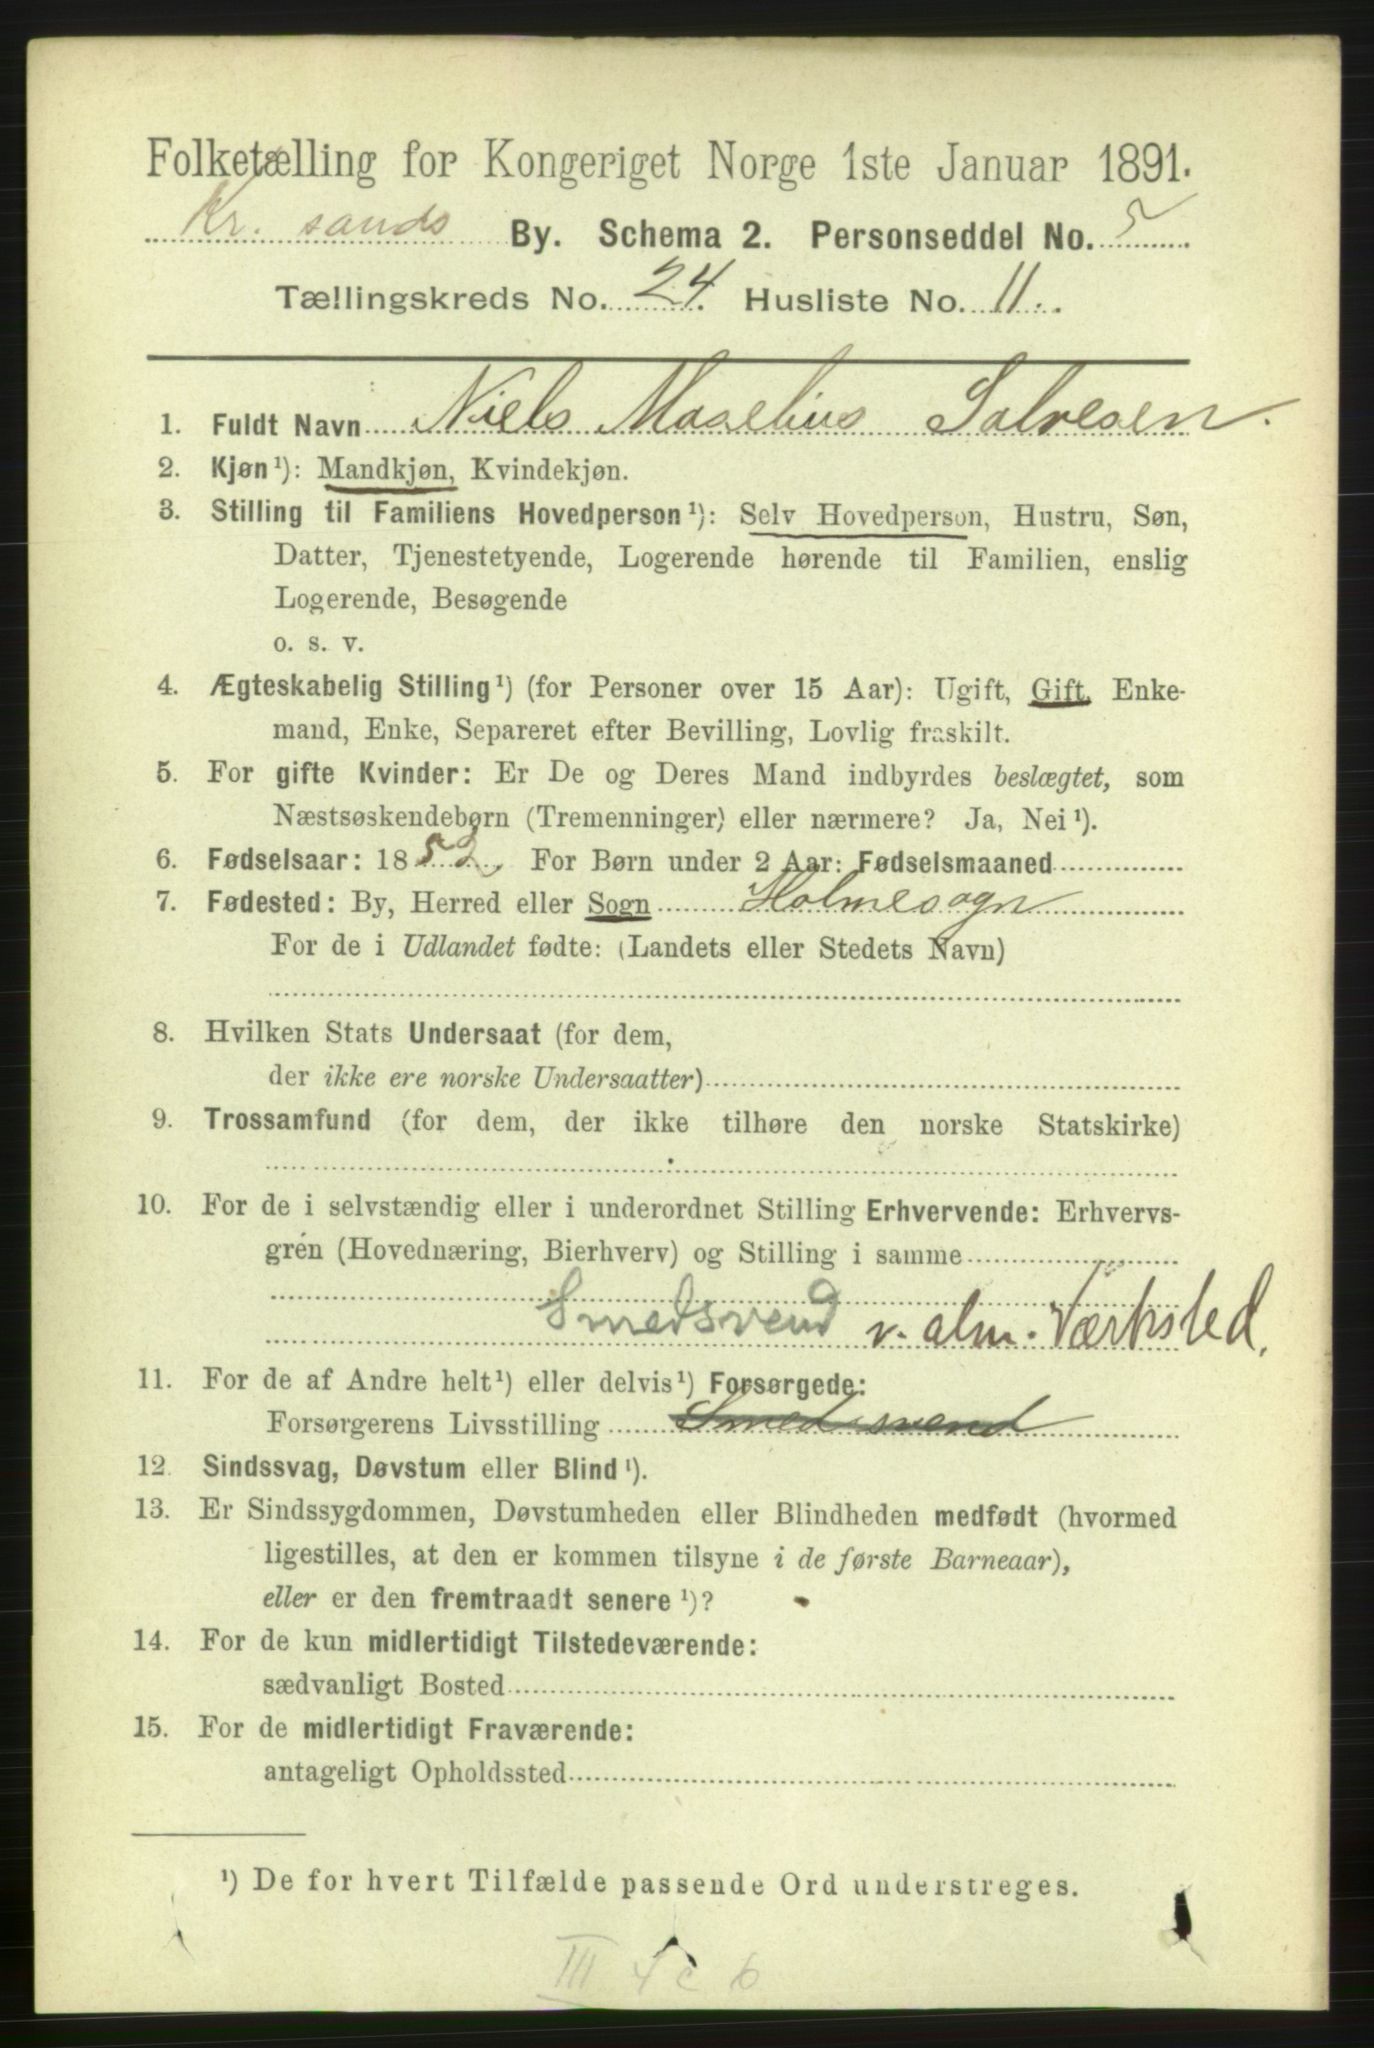 Folketælling for Kongeriget Norge 1ste Januar 1891.
Kr. sands By. Schema 2. Personseddel No. 5
Tællingskreds No. 24. Husliste No. 11.
1. Fuldt Navn Niels Maselius Salvesen.
2. Kjøn ¹): Mandkjøn, Kvindekjøn.
3. Stilling til Familiens Hovedperson ¹): Selv Hovedperson, Hustru, Søn,
Datter, Tjenestetyende, Logerende hørende til Familien, enslig
Logerende, Besøgende
o. s. v.
4. Ægteskabelig Stilling ¹) (for Personer over 15 Aar): Ugift, Gift, Enke-
mand, Enke, Separeret efter Bevilling, Lovlig fraskilt.
5. For gifte Kvinder: Er De og Deres Mand indbyrdes beslægtet, som
Næstsøskendebørn (Tremenninger) eller nærmere? Ja, Nei ¹).
6. Fødselsaar: 1852. For Børn under 2 Aar: Fødselsmaaned
7. Fødested: By, Herred eller Sogn Holmesogn
For de i Udlandet fødte: (Landets eller Stedets Navn)
8. Hvilken Stats Undersaat (for dem,
der ikke ere norske Undersaatter)
9. Trossamfund (for dem, der ikke tilhøre den norske Statskirke)
10. For de i selvstændig eller i underordnet Stilling Erhvervende: Erhvervs-
gren (Hovednæring, Bierhverv) og Stilling i samme
Smedsvend v. alm. Værksted.
11. For de af Andre helt ¹) eller delvis ¹) Forsørgede:
Forsørgerens Livsstilling Smedsvend
12. Sindssvag, Døvstum eller Blind ¹).
13. Er Sindssygdommen, Døvstumheden eller Blindheden medfødt (hvormed
ligestilles, at den er kommen tilsyne i de første Barneaar),
eller er den fremtraadt senere ¹)?
14. For de kun midlertidigt Tilstedeværende:
sædvanligt Bosted
15. For de midlertidigt Fraværende:
antageligt Opholdssted
¹) De for hvert Tilfælde passende Ord understreges.
III 4 c b